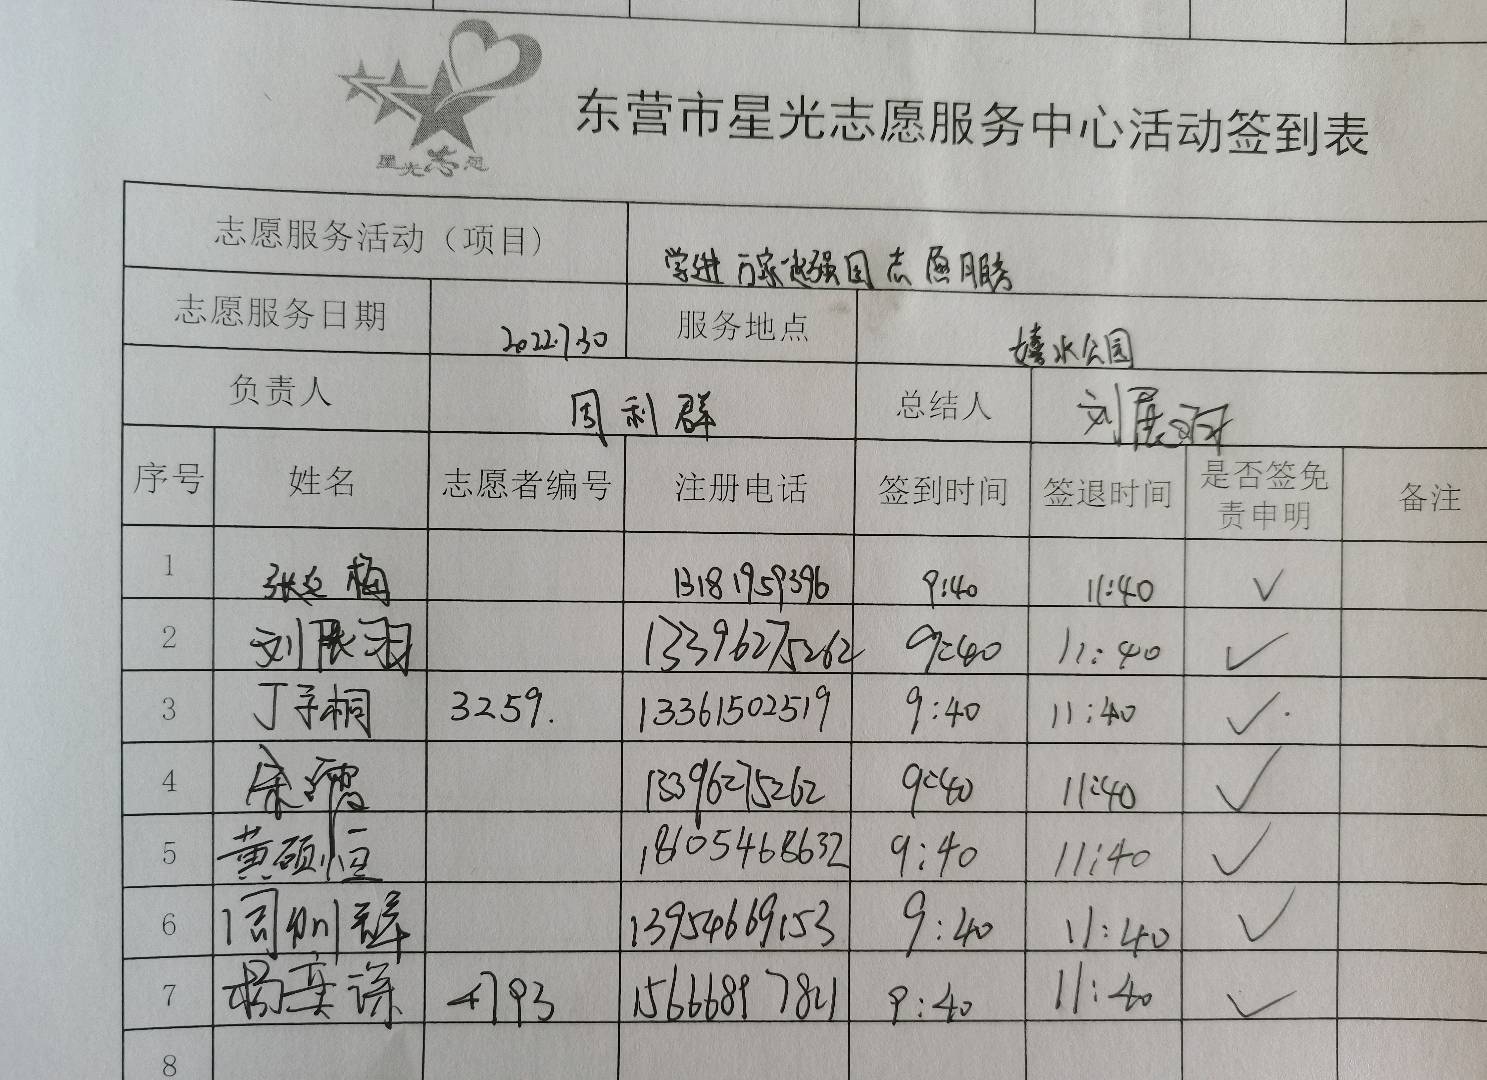 星光志愿
东营市星光志愿服务中心活动签到表
志愿服务活动（项目） 学进万家 强国志愿服务
志愿服务日期 2022.7.30 服务地点 嬉水公园
负责人 周利群 总结人 刘展羽
序号 姓名 志愿者编号 注册电话 签到时间 签退时间 是否签免责申明 备注
1 张 梅 13181959396 9:40 11:40 ✓
2 刘展羽 13396275262 9:40 11:40 ✓
3 丁子桐 3259. 13361502519 9:40 11:40 ✓
4 13396275262 9:40 11:40 ✓
5 黄硕恒 18605468632 9:40 11:40 ✓
6 周利群 13954669153 9:40 11:40 ✓
7 杨 4793 15666897821 9:40 11:40 ✓
8